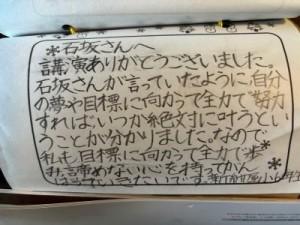 *石坂さんへ
講演ありがとうございました。
石坂さんが言っていたように自分
の夢や目標に向かって全力で努力
すれば、いつか絶対に叶うとい
うことが分かりました。なので
私も、目標に向かって全力で歩
み、諦めない心を持ってがん
ばっていきたいです。